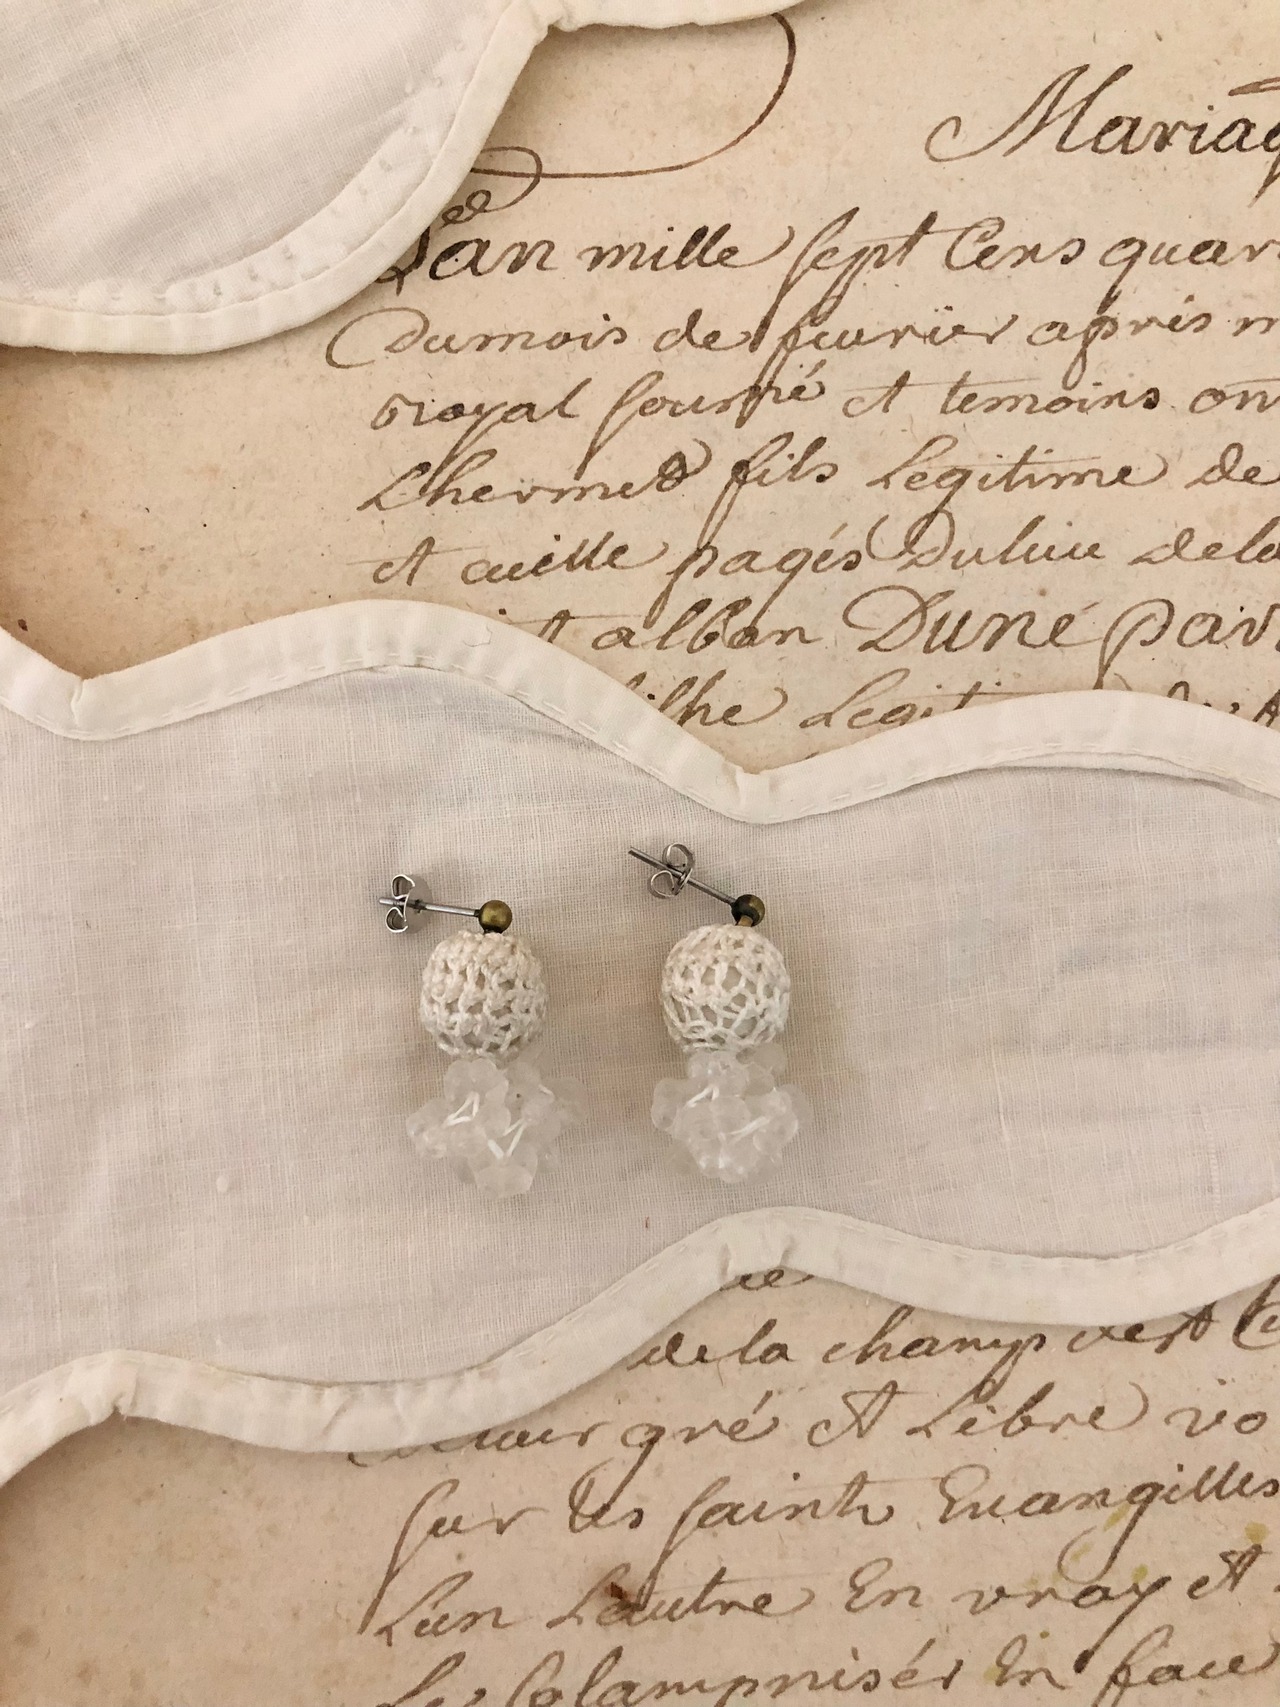 Mariag
Lan mille sept Cens quar
Dumois de feurier après m
royal sousné et temoins on
Lhermet fils Legitime de
et aueille pagés Dulieu dela
alban Duné par
filhe Legit
de la champ
gré et Libre vo
sur les saints Euangilles
Lun Lautre En vray et
Le Solampnisér En face